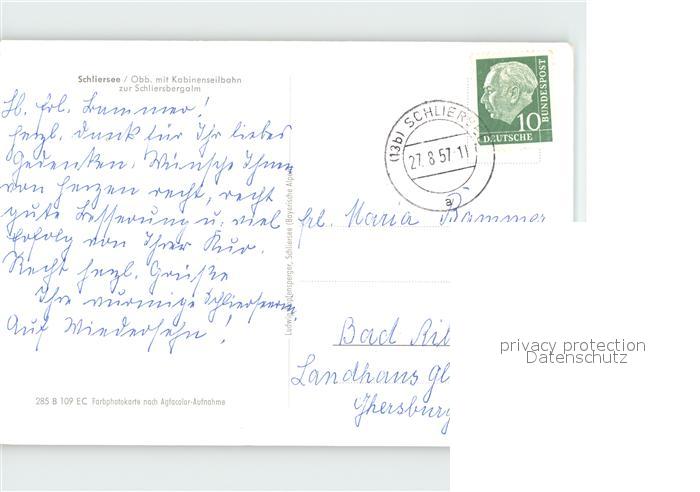 Schliersee / Obb. mit Kabinenseilbahn
zur Schliersbergalm
Lb. Frl. Bammer!
Herzl. Dank für Ihr liebes
Gedenken. Wünsche Ihnen
von Herzen recht, recht
gute Besserung u. viel
Erfolg von Ihrer Kur.
Recht herzl. Grüße
Ihre Schlierseerin,
Auf Wiedersehn!
285 B 109 EC Farbphotokarte nach Agfacolor-Aufnahme
Schliersee (Bayerische Alpen)
(13b) SCHLIERS
27.8.57-11
a
10
DEUTSCHE
BUNDESPOST
Frl. Maria Bammer
Bad
Landhaus Gl
privacy protection
Datenschutz